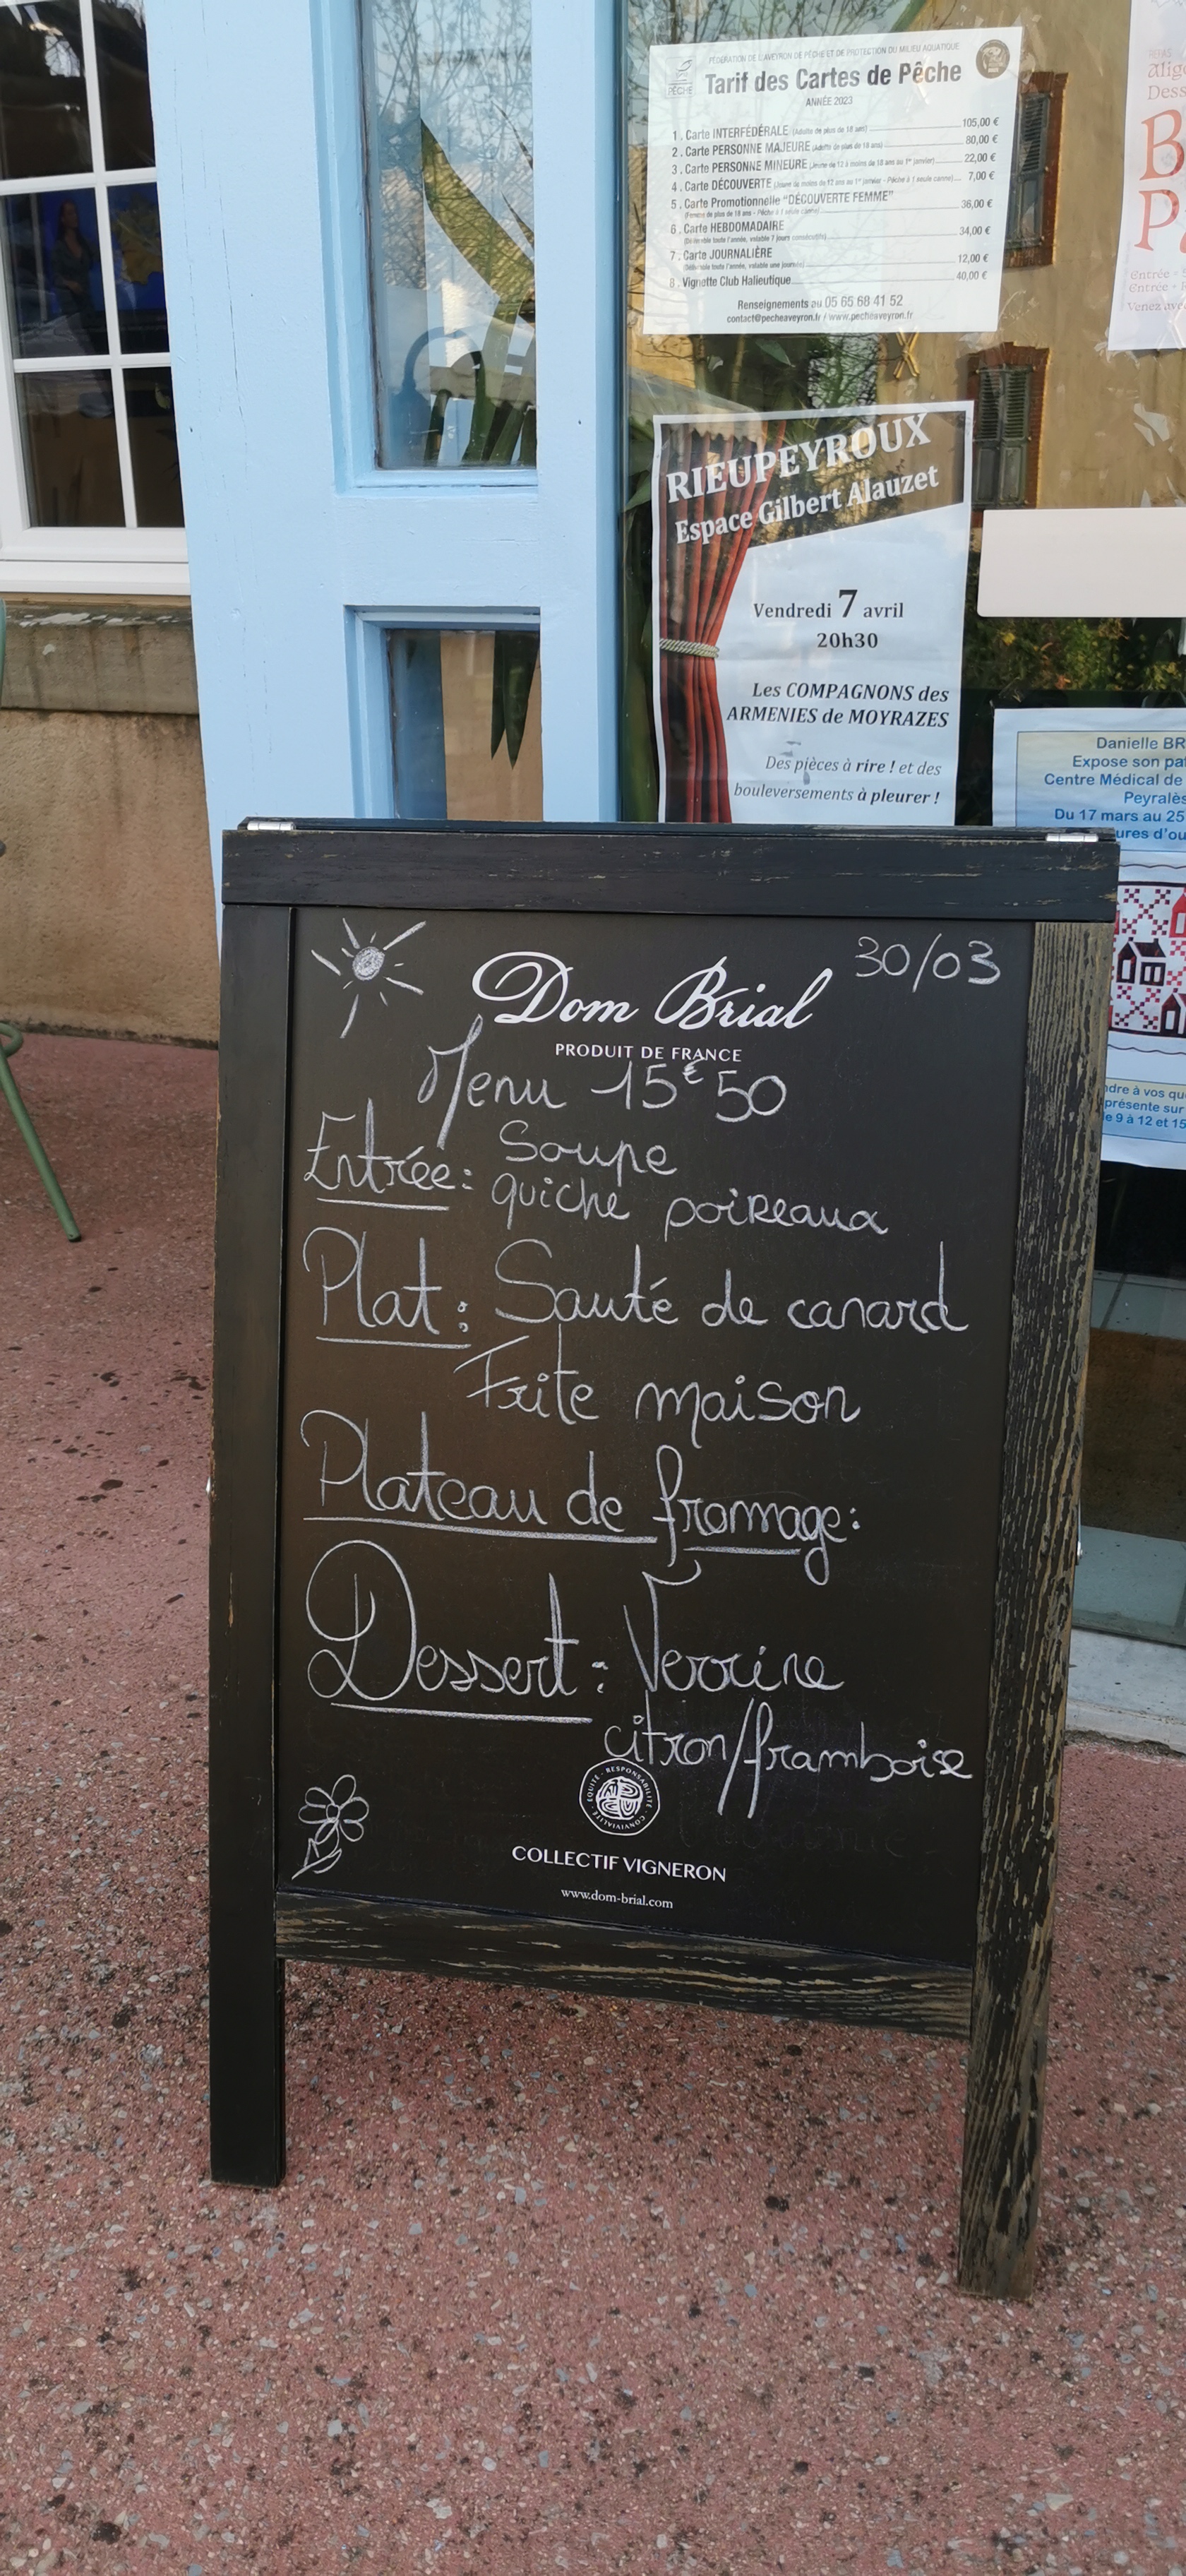 FÉDÉRATION DE L'AVEYRON DE PÊCHE ET DE PROTECTION DU MILIEU AQUATIQUE
PÊCHE
Tarif des Cartes de Pêche
ANNÉE 2023
1 . Carte INTERFÉDÉRALE (Adulte de plus de 18 ans) 105,00 €
2 . Carte PERSONNE MAJEURE (Adulte de plus de 18 ans) 80,00 €
3 . Carte PERSONNE MINEURE (Jeune de 12 à moins de 18 ans au 1er janvier) 22,00 €
4 . Carte DÉCOUVERTE (Jeune de moins de 12 ans au 1er janvier - Pêche à 1 seule canne) 7,00 €
5 . Carte Promotionnelle "DÉCOUVERTE FEMME"
(Femme de plus de 18 ans - Pêche à 1 seule canne) 36,00 €
6 . Carte HEBDOMADAIRE
(Délivrable toute l'année, valable 7 jours consécutifs) 34,00 €
7 . Carte JOURNALIÈRE
(Délivrable toute l'année, valable une journée) 12,00 €
8 . Vignette Club Halieutique 40,00 €
Renseignements au 05 65 68 41 52
contact@pecheaveyron.fr / www.pecheaveyron.fr
Entrée
Entrée
RIEUPEYROUX
Espace Gilbert Alauzet
Vendredi 7 avril
20h30
Les COMPAGNONS des
ARMENIES de MOYRAZES
Des pièces à rire ! et des
bouleversements à pleurer !
Danielle BR
Expose son
Centre Médical de
Peyralès
Du 17 mars au 25
présente sur
9 à 12 et 15
30/03
Dom Brial
PRODUIT DE FRANCE
Menu 15€50
Entrée: Soupe
quiche poireaux
Plat: Sauté de canard
Frite maison
Plateau de fromage:
Dessert: Verrine
citron/framboise
ÉQUITÉ - RESPONSABILITÉ - CONVIVIALITÉ
COLLECTIF VIGNERON
www.dom-brial.com